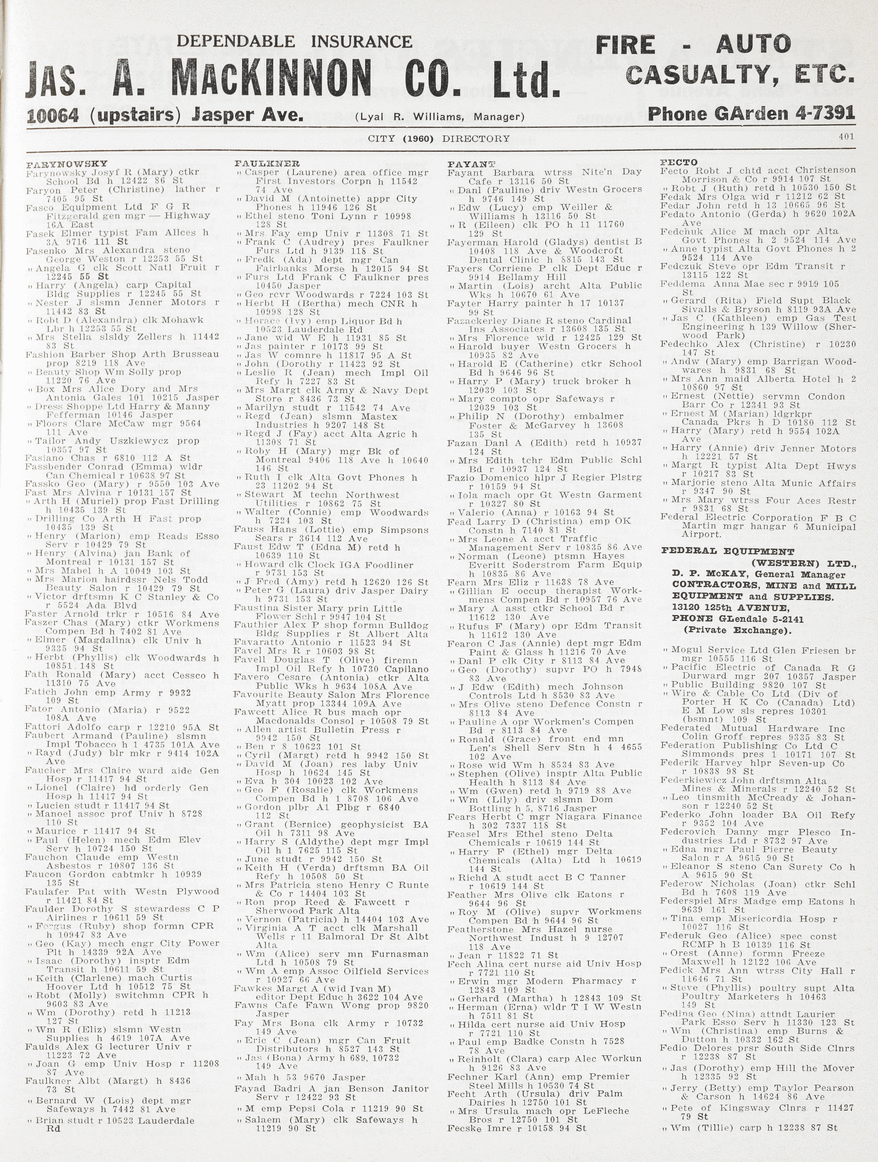 DEPENDABLE INSURANCE
JAS. A. MACKINNON CO. Ltd.
10064 (upstairs) Jasper Ave.
(Lyal R. Williams, Manager)
FIRE - AUTO
CASUALTY, ETC.
Phone GArden 4-7391
CITY (1960) DIRECTORY
401
FARYNOWSKY
Farynowsky Josyf R (Mary) ctkr
School Bd h 12422 86 St
Faryon Peter (Christine) lather r
7405 95 St
Fasco Equipment Ltd F G R
Fitzgerald gen mgr — Highway
16A East
Fasek Elmer typist Fam Allces h
3A 9716 111 St
Fasenko Mrs Alexandra steno
George Weston r 12253 55 St
" Angela G clk Scott Natl Fruit r
12245 55 St
" Harry (Angela) carp Capital
Bldg Supplies r 12245 55 St
" Nester J slsmn Jenner Motors r
11442 83 St
" Robt D (Alexandra) clk Mohawk
Lbr h 12253 55 St
" Mrs Stella slsldy Zellers h 11442
83 St
Fashion Barber Shop Arth Brusseau
prop 8219 118 Ave
" Beauty Shop Wm Solly prop
11220 76 Ave
" Box Mrs Alice Dory and Mrs
Antonia Gales 101 10215 Jasper
" Dress Shoppe Ltd Harry & Manny
Fefferman 10146 Jasper
" Floors Clare McCaw mgr 9564
111 Ave
" Tailor Andy Uszkiewycz prop
10357 97 St
Fasiano Chas r 6810 112 A St
Fassbender Conrad (Emma) wldr
Can Chemical r 10638 97 St
Fassko Geo (Mary) r 9550 103 Ave
Fast Mrs Alvina r 10131 157 St
" Arth H (Muriel) prop Fast Drilling
h 10435 139 St
" Drilling Co Arth H Fast prop
10435 139 St
" Henry (Marion) emp Reads Esso
Serv r 10429 79 St
" Henry (Alvina) jan Bank of
Montreal r 10131 157 St
" Mrs Mabel h A 10049 103 St
" Mrs Marion hairdssr Nels Todd
Beauty Salon r 10429 79 St
" Victor drftsmn K C Stanley & Co
r 5524 Ada Blvd
Faster Arnold trkr r 10516 84 Ave
Faszer Chas (Mary) ctkr Workmens
Compen Bd h 7402 81 Ave
" Elmer (Magdalina) clk Univ h
9335 94 St
" Herbt (Phyllis) clk Woodwards h
10851 148 St
Fath Ronald (Mary) acct Cessco h
11310 75 Ave
Fatich John emp Army r 9932
109 St
Fator Antonio (Maria) r 9522
108A Ave
Fattori Adolfo carp r 12210 95A St
Faubert Armand (Pauline) slsmn
Impl Tobacco h 1 4735 101A Ave
" Rayd (Judy) blr mkr r 9414 102A
Ave
Faucher Mrs Claire ward aide Gen
Hosp r 11417 94 St
" Lionel (Claire) hd orderly Gen
Hosp h 11417 94 St
" Lucien studt r 11417 94 St
" Manoel assoc prof Univ h 8728
110 St
" Maurice r 11417 94 St
" Paul (Helen) mech Edm Elev
Serv h 10724 150 St
Fauchon Claude emp Westn
Asbestos r 10807 136 St
Faucon Gordon cabtmkr h 10939
135 St
Faulafer Pat with Westn Plywood
r 11421 84 St
Faulder Dorothy S stewardess C P
Airlines r 10611 59 St
" Fergus (Ruby) shop formn CPR
h 10947 83 Ave
" Geo (Kay) mech engr City Power
Plt h 14339 92A Ave
" Isaac (Dorothy) insptr Edm
Transit h 10611 59 St
" Keith (Clarlene) mach Curtis
Hoover Ltd h 10512 75 St
" Robt (Molly) switchmn CPR h
9603 83 Ave
" Wm (Dorothy) retd h 11213
127 St
" Wm R (Eliz) slsmn Westn
Supplies h 4619 107A Ave
Faulds Alex G lecturer Univ r
11223 72 Ave
" Joan G emp Univ Hosp r 11208
87 Ave
Faulkner Albt (Margt) h 8436
73 St
" Bernard W (Lois) dept mgr
Safeways h 7442 81 Ave
" Brian studt r 10523 Lauderdale
Rd
FAULKNER
" Casper (Laurene) area office mgr
First Investors Corpn h 11542
74 Ave
" David M (Antoinette) appr City
Phones h 11946 126 St
" Ethel steno Toni Lynn r 10998
128 St
" Mrs Fay emp Univ r 11308 71 St
" Frank C (Audrey) pres Faulkner
Furs Ltd h 9139 118 St
" Fredk (Ada) dept mgr Can
Fairbanks Morse h 12015 94 St
" Furs Ltd Frank C Faulkner pres
10450 Jasper
" Geo rcvr Woodwards r 7224 103 St
" Herbt H (Bertha) mech CNR h
10998 128 St
" Horace (Ivy) emp Liquor Bd h
10523 Lauderdale Rd
" Jane wid W E h 11931 85 St
" Jas painter r 10173 99 St
" Jas W comnre h 11817 95 A St
" John (Dorothy) r 11423 92 St
" Leslie R (Jean) mech Impl Oil
Refy h 7227 83 St
" Mrs Margt clk Army & Navy Dept
Store r 8436 73 St
" Marilyn studt r 11542 74 Ave
" Regd (Jean) slsmn Mastex
Industries h 9207 148 St
" Regd J (Fay) acct Alta Agric h
11308 71 St
" Roby H (Mary) mgr Bk of
Montreal 9406 118 Ave h 10640
146 St
" Ruth I clk Alta Govt Phones h
23 11202 94 St
" Stewart M techn Northwest
Utilities r 10862 75 St
" Walter (Connie) emp Woodwards
h 7224 103 St
Fauss Hans (Lottie) emp Simpsons
Sears r 3614 112 Ave
Faust Edw T (Edna M) retd h
10639 110 St
" Howard clk Clock IGA Foodliner
r 9731 153 St
" J Fred (Amy) retd h 12620 126 St
" Peter G (Laura) driv Jasper Dairy
h 9731 153 St
Faustina Sister Mary prin Little
Flower Schl r 9947 104 St
Fauthier Alex P shop formn Bulldog
Bldg Supplies r St Albert Alta
Favaratto Antonio r 11523 94 St
Favel Mrs R r 10603 98 St
Favell Douglas T (Olive) firemn
Impl Oil Refy h 10730 Capilano
Favero Cesare (Antonia) ctkr Alta
Public Wks h 9634 108A Ave
Favourite Beauty Salon Mrs Florence
Myatt prop 13344 109A Ave
Fawcett Alice R bus mach opr
Macdonalds Consol r 10508 79 St
" Allen artist Bulletin Press r
9942 150 St
" Ben r 8 10623 101 St
" Cyril (Margt) retd h 9942 150 St
" David M (Joan) res laby Univ
Hosp h 10624 145 St
" Eva h 304 10023 102 Ave
" Geo F (Rosalie) clk Workmens
Compen Bd h 1 8708 106 Ave
" Gordon plbr A1 Plbg r 6840
112 St
" Grant (Bernice) geophysicist BA
Oil h 7311 98 Ave
" Harry S (Aldythe) dept mgr Impl
Oil h 1 7625 115 St
" June studt r 9942 150 St
" Keith H (Verda) drftsmn BA Oil
Refy h 10508 50 St
" Mrs Patricia steno Henry C Runte
& Co r 14404 103 St
" Ron prop Reed & Fawcett r
Sherwood Park Alta
" Vernon (Patricia) h 14404 103 Ave
" Virginia A T acct clk Marshall
Wells r 11 Balmoral Dr St Albt
Alta
" Wm (Alice) serv mn Furnasman
Ltd h 10508 79 St
" Wm A emp Assoc Oilfield Services
r 10927 66 Ave
Fawkes Margt A (wid Ivan M)
editor Dept Educ h 3622 104 Ave
Fawns Cafe Fawn Wong prop 9820
Jasper
Fay Mrs Bona clk Army r 10732
149 Ave
" Eric C (Jean) mgr Can Fruit
Distributors h 8527 143 St
" Jas (Bona) Army h 689, 10732
149 Ave
" Mah h 53 9670 Jasper
Fayad Badri A jan Benson Janitor
Serv r 12422 93 St
" M emp Pepsi Cola r 11219 90 St
" Salaem (Mary) clk Safeways h
11219 90 St
FAYANT
Fayant Barbara wtrss Nite'n Day
Cafe r 13116 50 St
" Danl (Pauline) driv Westn Grocers
h 9746 149 St
" Edw (Lucy) emp Weiller &
Williams h 13116 50 St
" R (Eileen) clk PO h 11 11760
129 St
Fayerman Harold (Gladys) dentist B
10408 118 Ave & Woodcroft
Dental Clinic h 8815 143 St
Fayers Corriene P clk Dept Educ r
9914 Bellamy Hill
" Martin (Lois) archt Alta Public
Wks h 10670 61 Ave
Fayter Harry painter h 17 10137
99 St
Fazackerley Diane R steno Cardinal
Ins Associates r 13608 135 St
" Mrs Florence wid r 12425 129 St
" Harold buyer Westn Grocers h
10935 82 Ave
" Harold E (Catherine) ctkr School
Bd h 9646 96 St
" Harry P (Mary) truck broker h
12039 103 St
" Mary compto opr Safeways r
12039 103 St
" Philip N (Dorothy) embalmer
Foster & McGarvey h 13608
135 St
Fazan Danl A (Edith) retd h 10937
124 St
" Mrs Edith tchr Edm Public Schl
Bd r 10937 124 St
Fazio Domenico hlpr J Regier Plstrg
r 10159 94 St
" Iola mach opr Gt Westn Garment
r 10327 80 St
" Valerio (Anna) r 10163 94 St
Fead Larry D (Christina) emp OK
Constn h 7140 81 St
" Mrs Leone A acct Traffic
Management Serv r 10835 86 Ave
" Norman (Leone) ptsmn Hayes
Everitt Soderstrom Farm Equip
h 10835 86 Ave
Fearn Mrs Eliz r 11638 78 Ave
" Gillian E occup therapist Work-
mens Compen Bd r 10957 76 Ave
" Mary A asst ctkr School Bd r
11612 130 Ave
" Rufus F (Mary) opr Edm Transit
h 11612 130 Ave
Fearon C Jas (Annie) dept mgr Edm
Paint & Glass h 11216 70 Ave
" Danl P clk City r 8113 84 Ave
" Geo (Dorothy) supvr PO h 7948
83 Ave
" J Edw (Edith) mech Johnson
Controls Ltd h 8530 83 Ave
" Mrs Olive steno Defence Constn r
8113 84 Ave
" Pauline A opr Workmen's Compen
Bd r 8113 84 Ave
" Ronald (Grace) front end mn
Len's Shell Serv Stn h 4 4655
102 Ave
" Rose wid Wm h 8534 83 Ave
" Stephen (Olive) insptr Alta Public
Health h 8113 84 Ave
" Wm (Gwen) retd h 9719 88 Ave
" Wm (Lily) driv slsmn Dom
Bottling h 5, 8716 Jasper
Fears Herbt C mgr Niagara Finance
h 302 7337 118 St
Feasel Mrs Ethel steno Delta
Chemicals r 10619 144 St
" Harry F (Ethel) mgr Delta
Chemicals (Alta) Ltd h 10619
144 St
" Richd A studt acct B C Tanner
r 10619 144 St
Feather Mrs Olive clk Eatons r
9644 96 St
" Roy M (Olive) supvr Workmens
Compen Bd h 9644 96 St
Featherstone Mrs Hazel nurse
Northwest Indust h 9 12707
118 Ave
" Jean r 11822 71 St
Fech Alina cert nurse aid Univ Hosp
r 7721 110 St
" Erwin mgr Modern Pharmacy r
12843 109 St
" Gerhard (Martha) h 12843 109 St
" Herman (Erna) wldr T I W Westn
h 7511 81 St
" Hilda cert nurse aid Univ Hosp
r 7721 110 St
" Paul emp Badke Constn h 7528
78 Ave
" Reinholt (Clara) carp Alec Workun
h 9126 83 Ave
Fechner Karl (Ann) emp Premier
Steel Mills h 10530 74 St
Fecht Arth (Ursula) driv Palm
Dairies h 12750 101 St
" Mrs Ursula mach opr LeFleche
Bros r 12750 101 St
Fecske Imre r 10158 94 St
FECTO
Fecto Robt J chtd acct Christenson
Morrison & Co r 9914 107 St
" Robt J (Ruth) retd h 10530 150 St
Fedak Mrs Olga wid r 11212 62 St
Fedar John retd h 13 10665 96 St
Fedato Antonio (Gerda) h 9620 102A
Ave
Fedchuk Alice M mach opr Alta
Govt Phones h 2 9524 114 Ave
" Anne typist Alta Govt Phones h 2
9524 114 Ave
Fedczuk Steve opr Edm Transit r
13115 122 St
Feddema Anna Mae sec r 9919 105
St
" Gerard (Rita) Field Supt Black
Sivalls & Bryson h 8119 93A Ave
" Jas C (Kathleen) emp Gas Test
Engineering h 139 Willow (Sher-
wood Park)
Fedechko Alex (Christine) r 10230
147 St
" Andw (Mary) emp Barrigan Wood-
wares h 9831 68 St
" Mrs Ann maid Alberta Hotel h 2
10860 97 St
" Ernest (Nettie) servmn Condon
Barr Co r 12341 93 St
" Ernest M (Marian) ldgrkpr
Canada Pkrs h D 10180 112 St
" Harry (Mary) retd h 9554 102A
Ave
" Harry (Annie) driv Jenner Motors
h 12221 57 St
" Margt R typist Alta Dept Hwys
r 10217 83 St
" Marjorie steno Alta Munic Affairs
r 9347 90 St
" Mrs Mary wtrss Four Aces Restr
r 9831 68 St
Federal Electric Corporation F B C
Martin mgr hangar 6 Municipal
Airport.
FEDERAL EQUIPMENT
(WESTERN) LTD.,
D. P. McKAY, General Manager
CONTRACTORS, MINE and MILL
EQUIPMENT and SUPPLIES.
13120 125th AVENUE,
PHONE GLendale 5-2141
(Private Exchange).
" Mogul Service Ltd Glen Friesen br
mgr 10555 116 St
" Pacific Electric of Canada R G
Durward mgr 207 10357 Jasper
" Public Building 9820 107 St
" Wire & Cable Co Ltd (Div of
Porter H K Co (Canada) Ltd)
E M Low sls repres 10301
(bsmnt) 109 St
Federated Mutual Hardware Inc
Colin Groff repres 9335 83 St
Federation Publishing Co Ltd C
Simmonds pres 1 10171 107 St
Federik Harvey hlpr Seven-up Co
r 10838 98 St
Federkiewicz John drftsmn Alta
Mines & Minerals r 12240 52 St
" Leo tinsmith McCready & Johan-
son r 12240 52 St
Federko John loader BA Oil Refy
r 9352 104 Ave
Federovich Danny mgr Plesco In-
dustries Ltd r 8732 97 Ave
" Edna mgr Paul Pierre Beauty
Salon r A 9615 90 St
" Eleanor S steno Can Surety Co h
A 9615 90 St
Federow Nicholas (Joan) ctkr Schl
Bd h 7608 119 Ave
Federspiel Mrs Madge emp Eatons h
9639 161 St
" Tina emp Misericordia Hosp r
10027 116 St
Federuk Geo (Alice) spec const
RCMP h B 10139 116 St
" Orest (Anne) formn Freeze
Maxwell h 12122 106 Ave
Fedick Mrs Ann wtrss City Hall r
11646 71 St
" Steve (Phyllis) poultry supt Alta
Poultry Marketers h 10463
149 St
Fedina Geo (Nina) attndt Laurier
Park Esso Serv h 11330 123 St
" Wm (Christina) emp Burns &
Dutton h 10332 162 St
Fedio Delores prsr South Side Clnrs
r 12238 87 St
" Jas (Dorothy) emp Hill the Mover
h 12335 92 St
" Jerry (Betty) emp Taylor Pearson
& Carson h 14624 86 Ave
" Pete of Kingsway Clnrs r 11427
79 St
" Wm (Tillie) carp h 12238 87 St